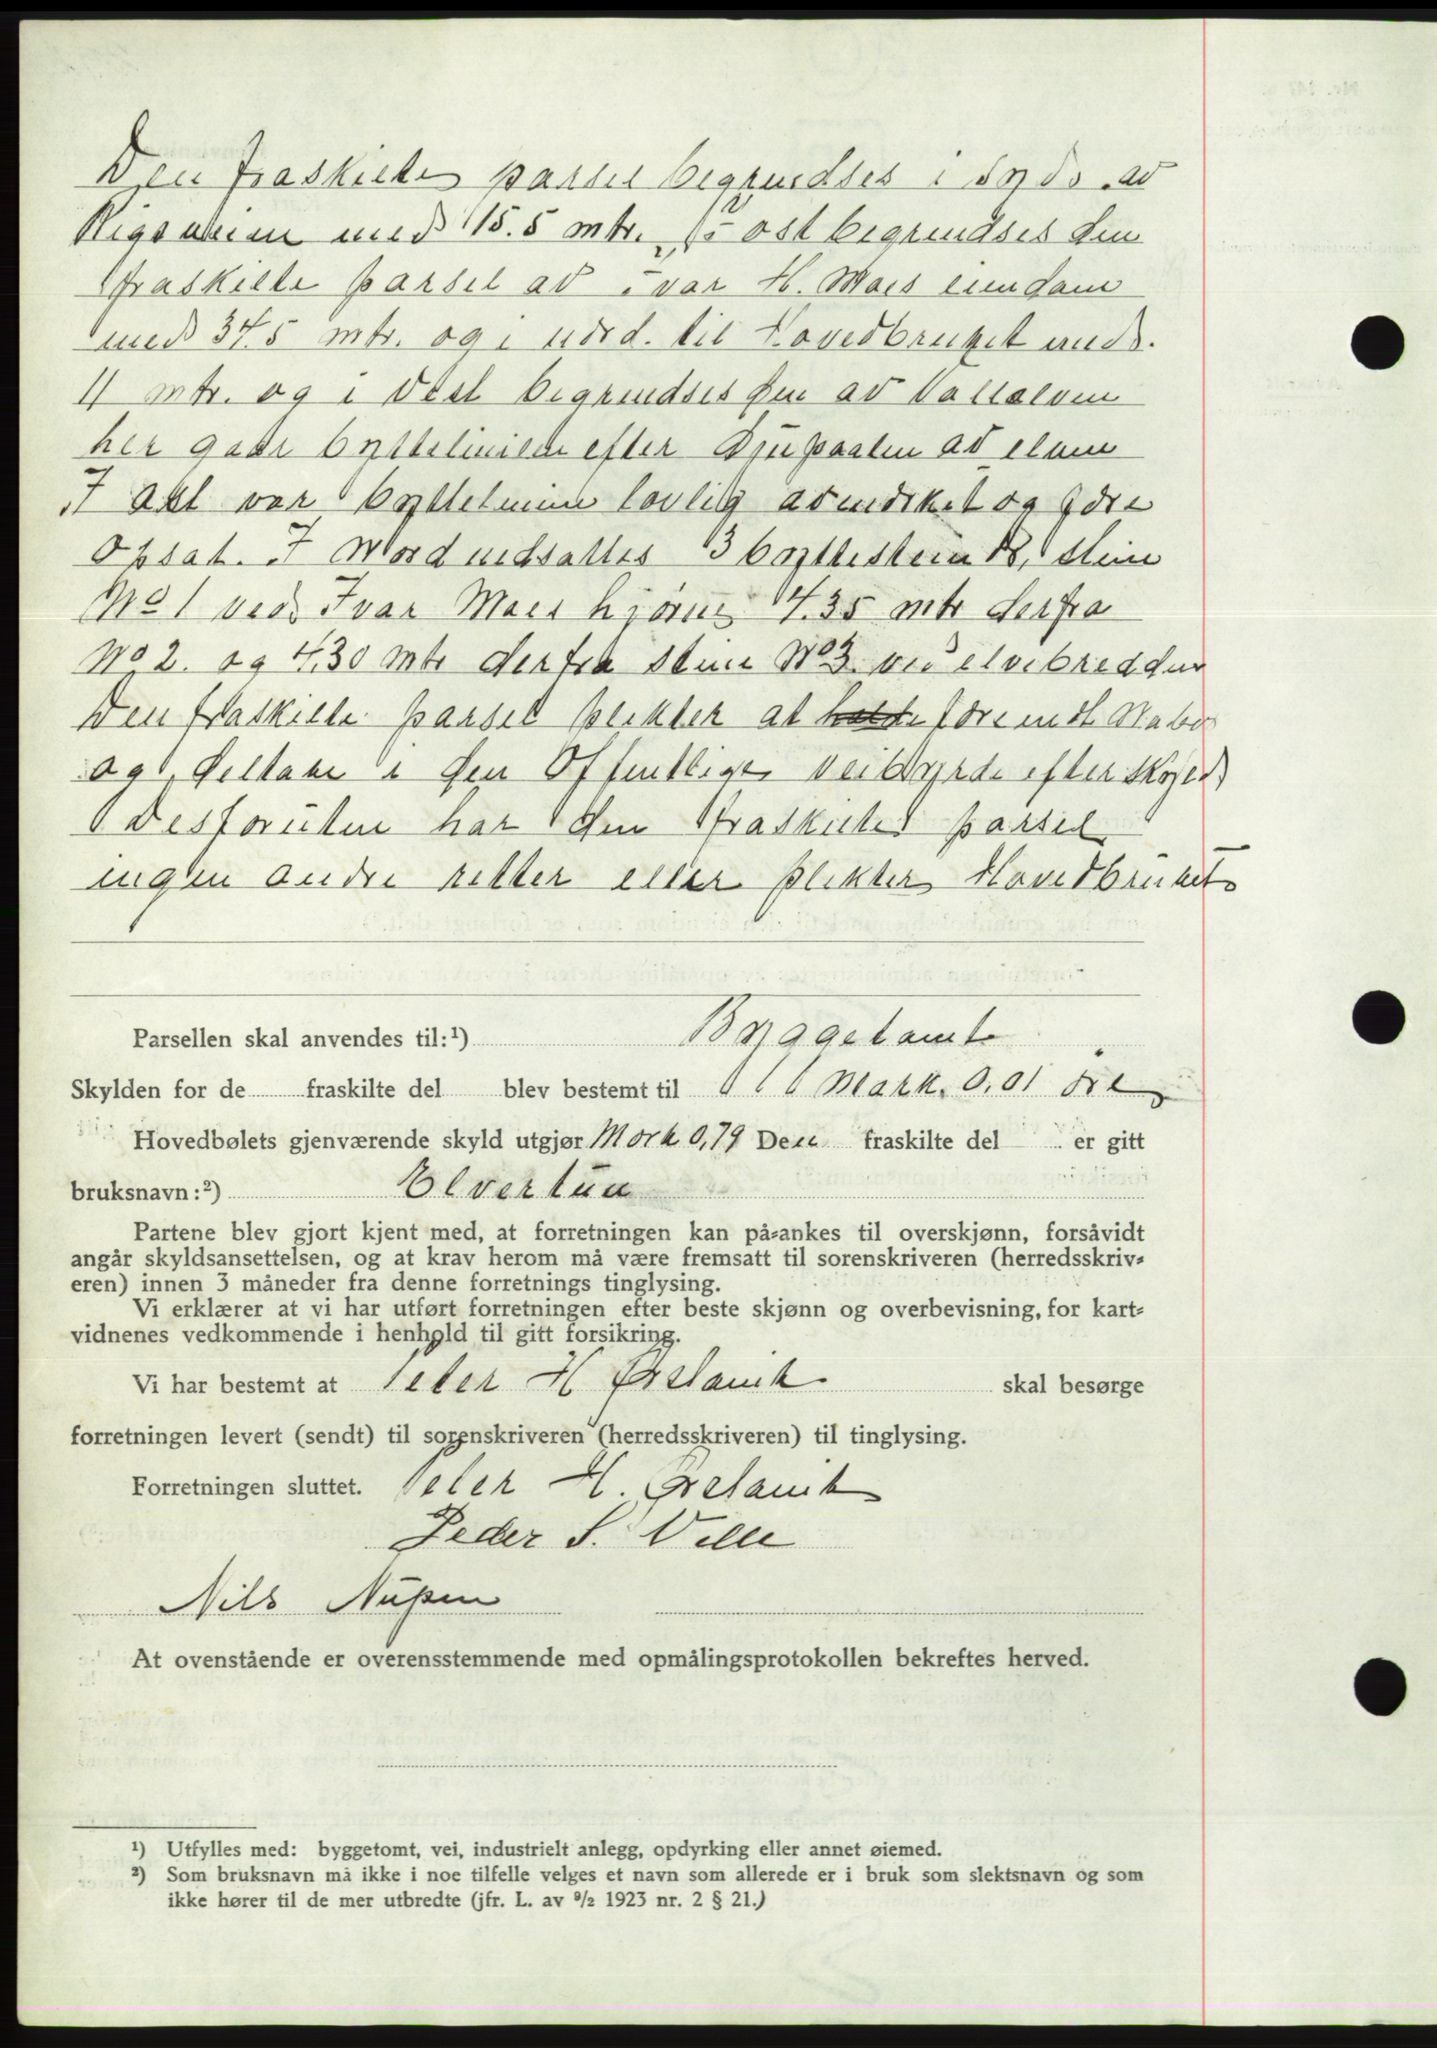 Den fraskilte parsel begrendses i Syd. av
Rigsveien med 15.5 mtr. i ost begrendses den
fraskilte parsel av ivar H. Moes eiendom
med 34.5 mtr. og i nord. til Hovedbruket med.
11 mtr. og i Vest begrendses den av Vallelven
her gaar byttelinien efter Djupaalen av elven
I alt var byttelinien lovlig avmerket og
opsat. I Nord nedsattes 3 byttesteiner, steine
No 1 ved Ivar Moes hjørne 4.35 mtr derfra
No 2. og 4,30 mtr derfra steine No 3 ved elvebredden
Den fraskilte parsel plikter at holde Nabo
og deltake i den Offentlige veibyrde efter skyld
Desforuten har den fraskilte parsel
ingen andre retter eller plikter Hovedbruket
Parsellen skal anvendes til:¹) Byggetomt
Skylden for de fraskilte del blev bestemt til Mark. 0,01 øre
Hovedbølets gjenværende skyld utgjør Mark 0,79 Den fraskilte del er gitt
bruksnavn:²) Elvertun
Partene blev gjort kjent med, at forretningen kan på-ankes til overskjønn, forsåvidt
angår skyldsansettelsen, og at krav herom må være fremsatt til sorenskriveren (herredsskriv-
eren) innen 3 måneder fra denne forretnings tinglysing.
Vi erklærer at vi har utført forretningen efter beste skjønn og overbevisning, for kart-
vidnenes vedkommende i henhold til gitt forsikring.
Vi har bestemt at Peter H Ørslavik skal besørge
forretningen levert (sendt) til sorenskriveren (herredsskriveren) til tinglysing.
Forretningen sluttet. Peter H. Ørslavik
Peder S. Velle
Nils Nupen
At ovenstående er overensstemmende med opmålingsprotokollen bekreftes herved.
¹) Utfylles med: byggetomt, vei, industrielt anlegg, opdyrking eller annet øiemed.
²) Som bruksnavn må ikke i noe tilfelle velges et navn som allerede er i bruk som slektsnavn og som
ikke hører til de mer utbredte (jfr. L. av 9/2 1923 nr. 2 § 21.)